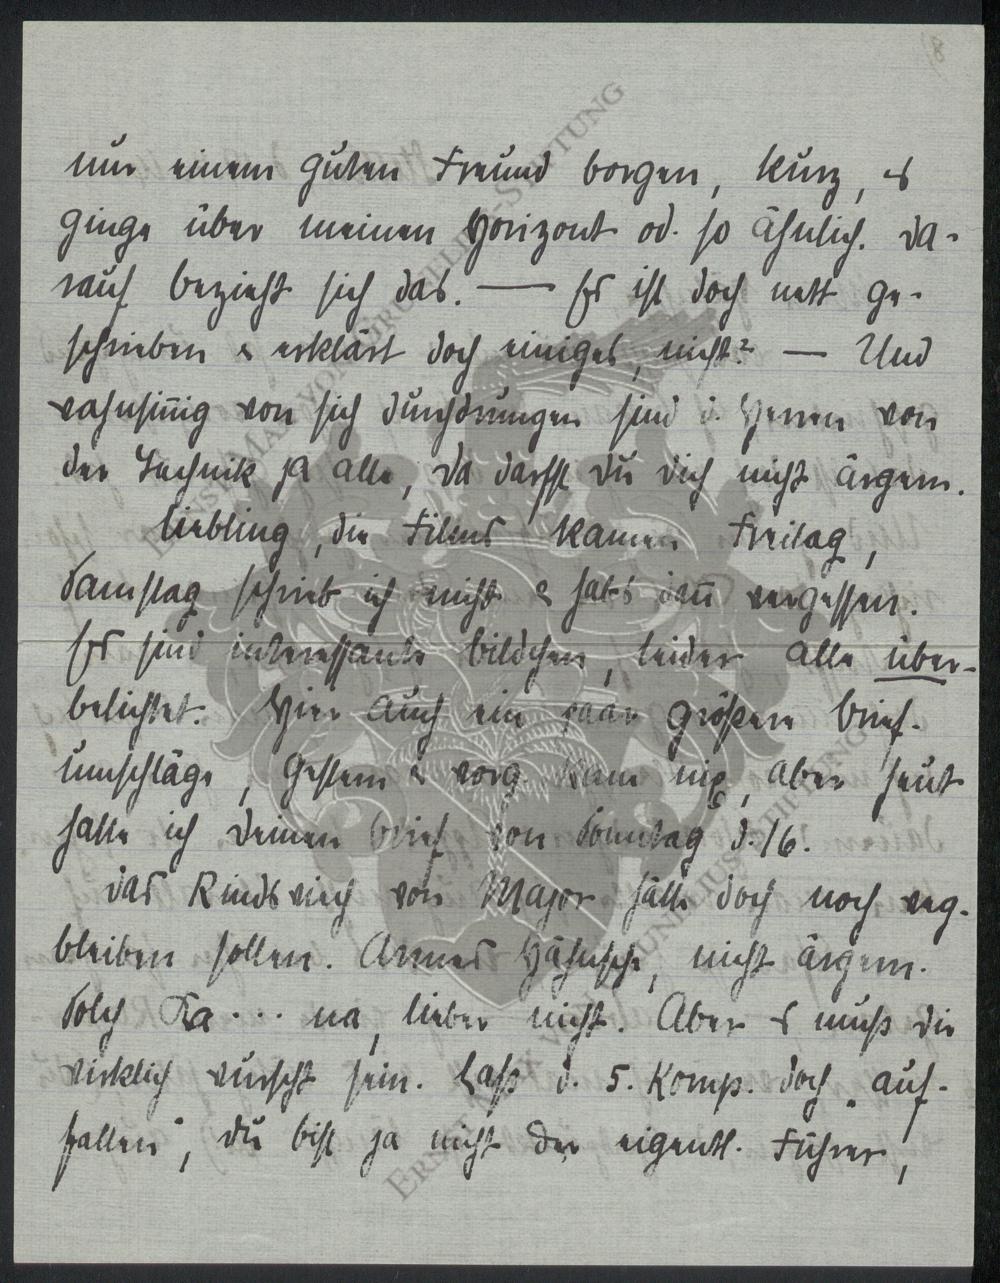 8)
nur einem guten Freund borgen, kurz, es
ginge über meinen Horizont od. so ähnlich. Da-
rauf bezieht sich das. — Es ist doch nett ge-
schrieben & erklärt doch einiges, nicht? — Und
wahnsin̄ig von sich durchdrungen sind d. Herren von
der Technik ja alle, da darfst Du Dich nicht ärgern.
Liebling, die Films kamen Freitag,
Samstag schrieb ich nicht & hab's dan̄ vergessen.
Es sind interessante Bildchen, leider alle über-
belichtet. Hier auch ein paar größere Brief-
umschläge, gestern & vorg. kam nix, aber heut
hatte ich Deinen Brief von Sonntag d. 16.
Das Rindsviech von Major hätte doch noch weg-
bleiben sollen. Armes Hähnsche, nicht ärgern.
Solch Ka... na, lieber nicht. Aber es muß Dir
wirklich wurscht sein. Laß d. 5. Komp. doch „auf-
fallen", Du bist ja nicht der eigentl. Führer,
ERNST MAX VON GRUNELIUS-STIFTUNG
ERNST MAX VON GRUNELIUS-STIFTUNG